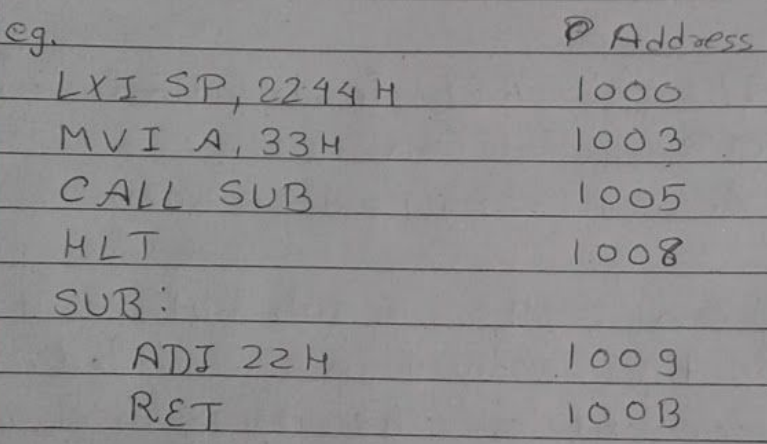 eg. Address
LXI SP, 2244H 1000
MVI A, 33H 1003
CALL SUB 1005
HLT 1008
SUB:
ADI 22H 1009
RET 100B